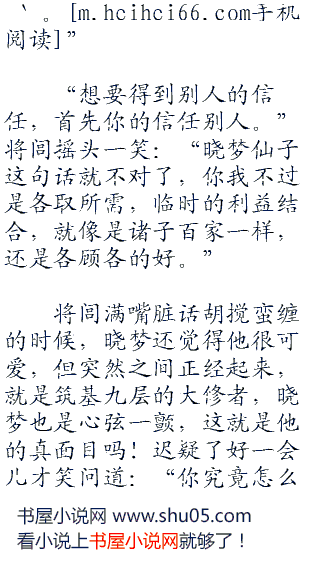 丶。[m.hcihci66.com手机
阅读]”
“想要得到别人的信
任，首先你的信任别人。”
将闾摇头一笑：“晓梦仙子
这句话就不对了，你我不过
是各取所需，临时的利益结
合，就像是诸子百家一样，
还是各顾各的好。”
将闾满嘴脏话胡搅蛮缠
的时候，晓梦还觉得他很可
爱，但突然之间正经起来，
就是筑基九层的大修者，晓
梦也是心弦一颤，这就是他
的真面目吗！迟疑了好一会
儿才笑问道：“你究竟怎么
书屋小说网 www.shu05.com
看小说上书屋小说网就够了！